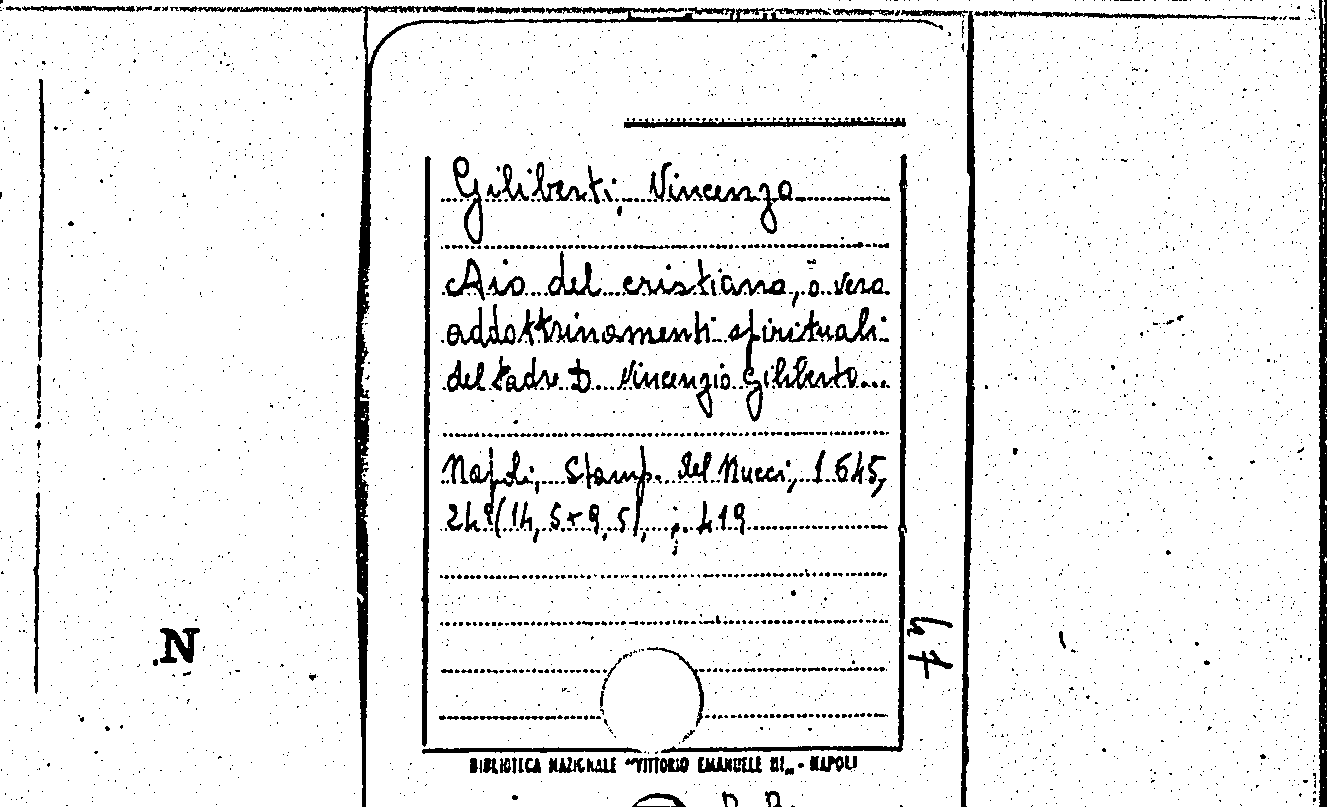 Giliberti, Vincenzo
Aio del cristiano, ò vero
addottrinamenti spirituali
del Padre D. Vincenzio Giliberto...
Napoli, Stamp. del Nucci, 1645,
24º (14,5x9,5), ; 419
47
N
BIBLIOTECA NAZIONALE "VITTORIO EMANUELE III„ - NAPOLI